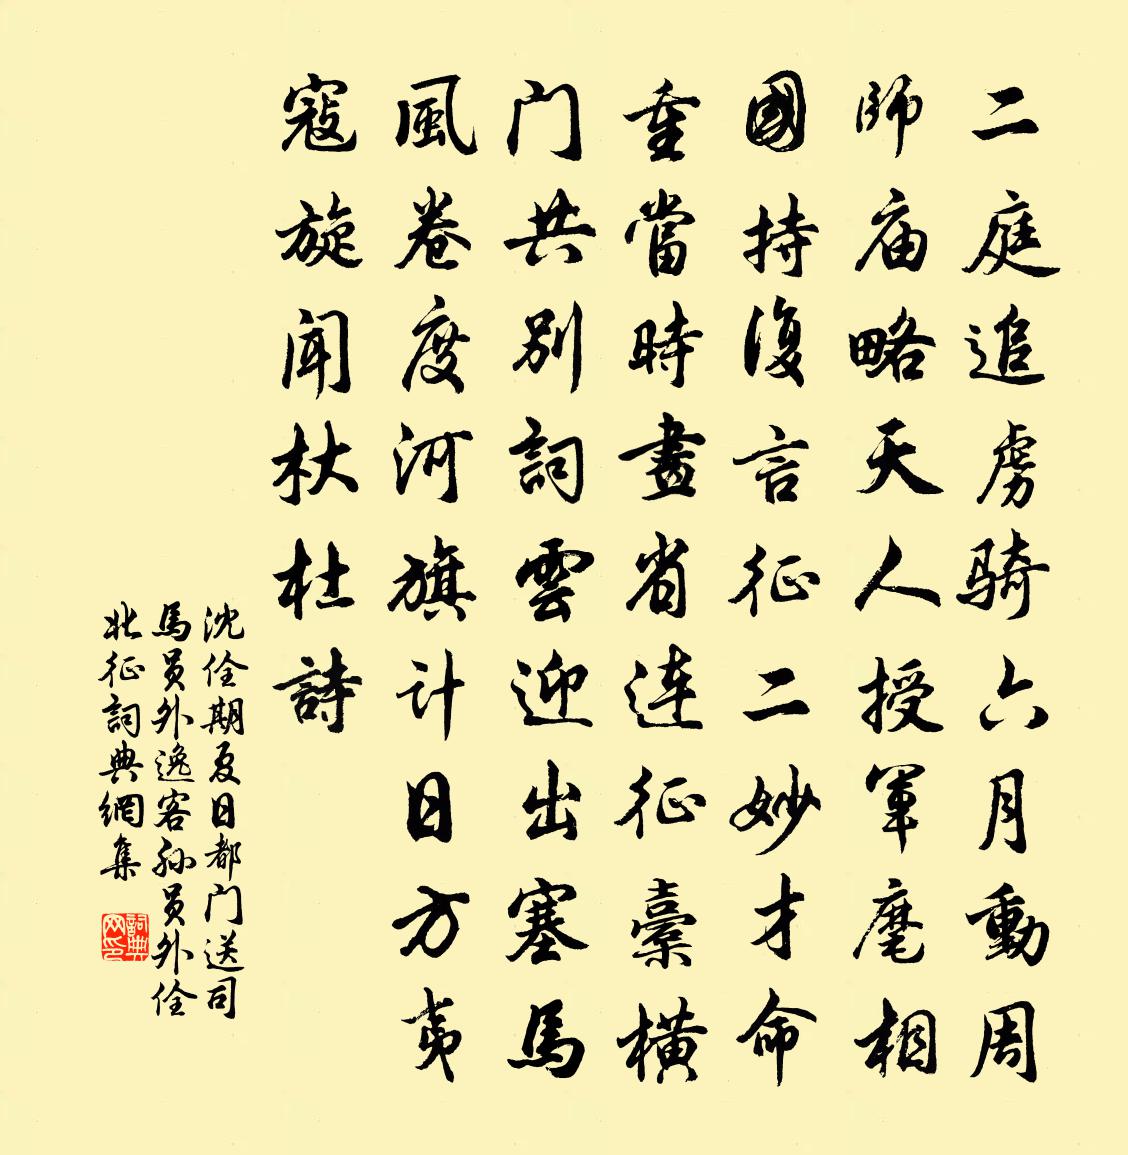 二庭追虏骑六月動周
師庙略天人授軍麾相
國持復言征二妙才命
重當時畫省連征橐橫
门共别詞雲迎出塞馬
風卷度河旗计日方夷
寇旋闻杕杜詩
沈佺期夏日都门送司
馬员外逸客孙员外佺
北征詞典網集
詞典网印